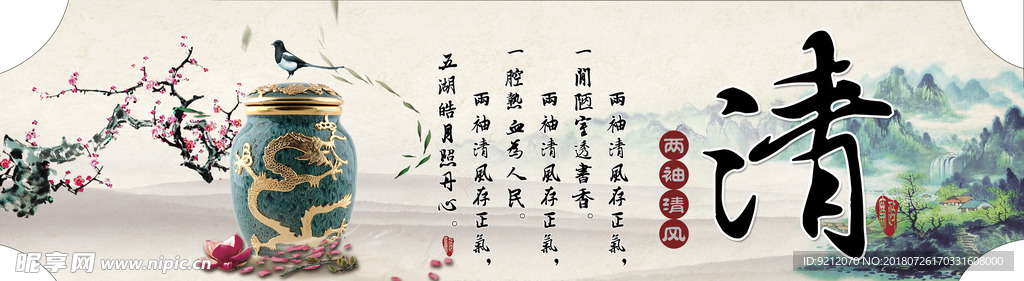 清
两袖清风
兩袖清風存正氣，
一間陋室透書香。
兩袖清風存正氣，
一腔熱血為人民。
兩袖清風存正氣，
五湖皓月照丹心。
昵享网 www.nipic.cn
ID:9212070 NO:20180726170331608000